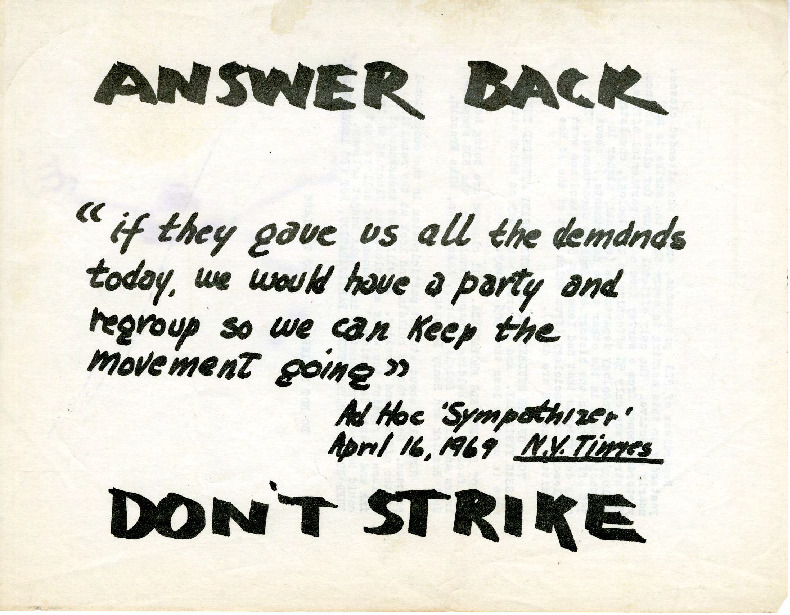 ANSWER BACK
“if they gave us all the demands
today, we would have a party and
regroup so we can keep the
movement going”
Ad Hoc 'Sympathizer'
April 16, 1969 N.Y. Times
DON'T STRIKE